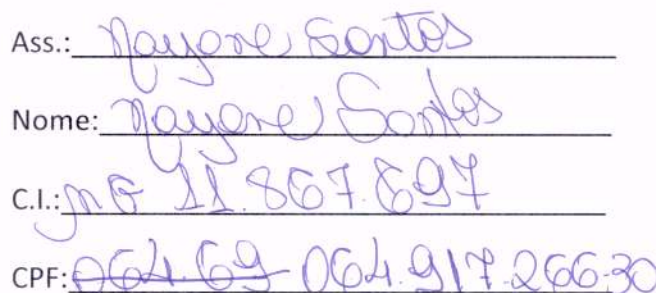 Ass.: Nayane Santos
Nome: Nayane Santos
C.I.: MG 11.867.697
CPF: 064.69 064.917.266-30